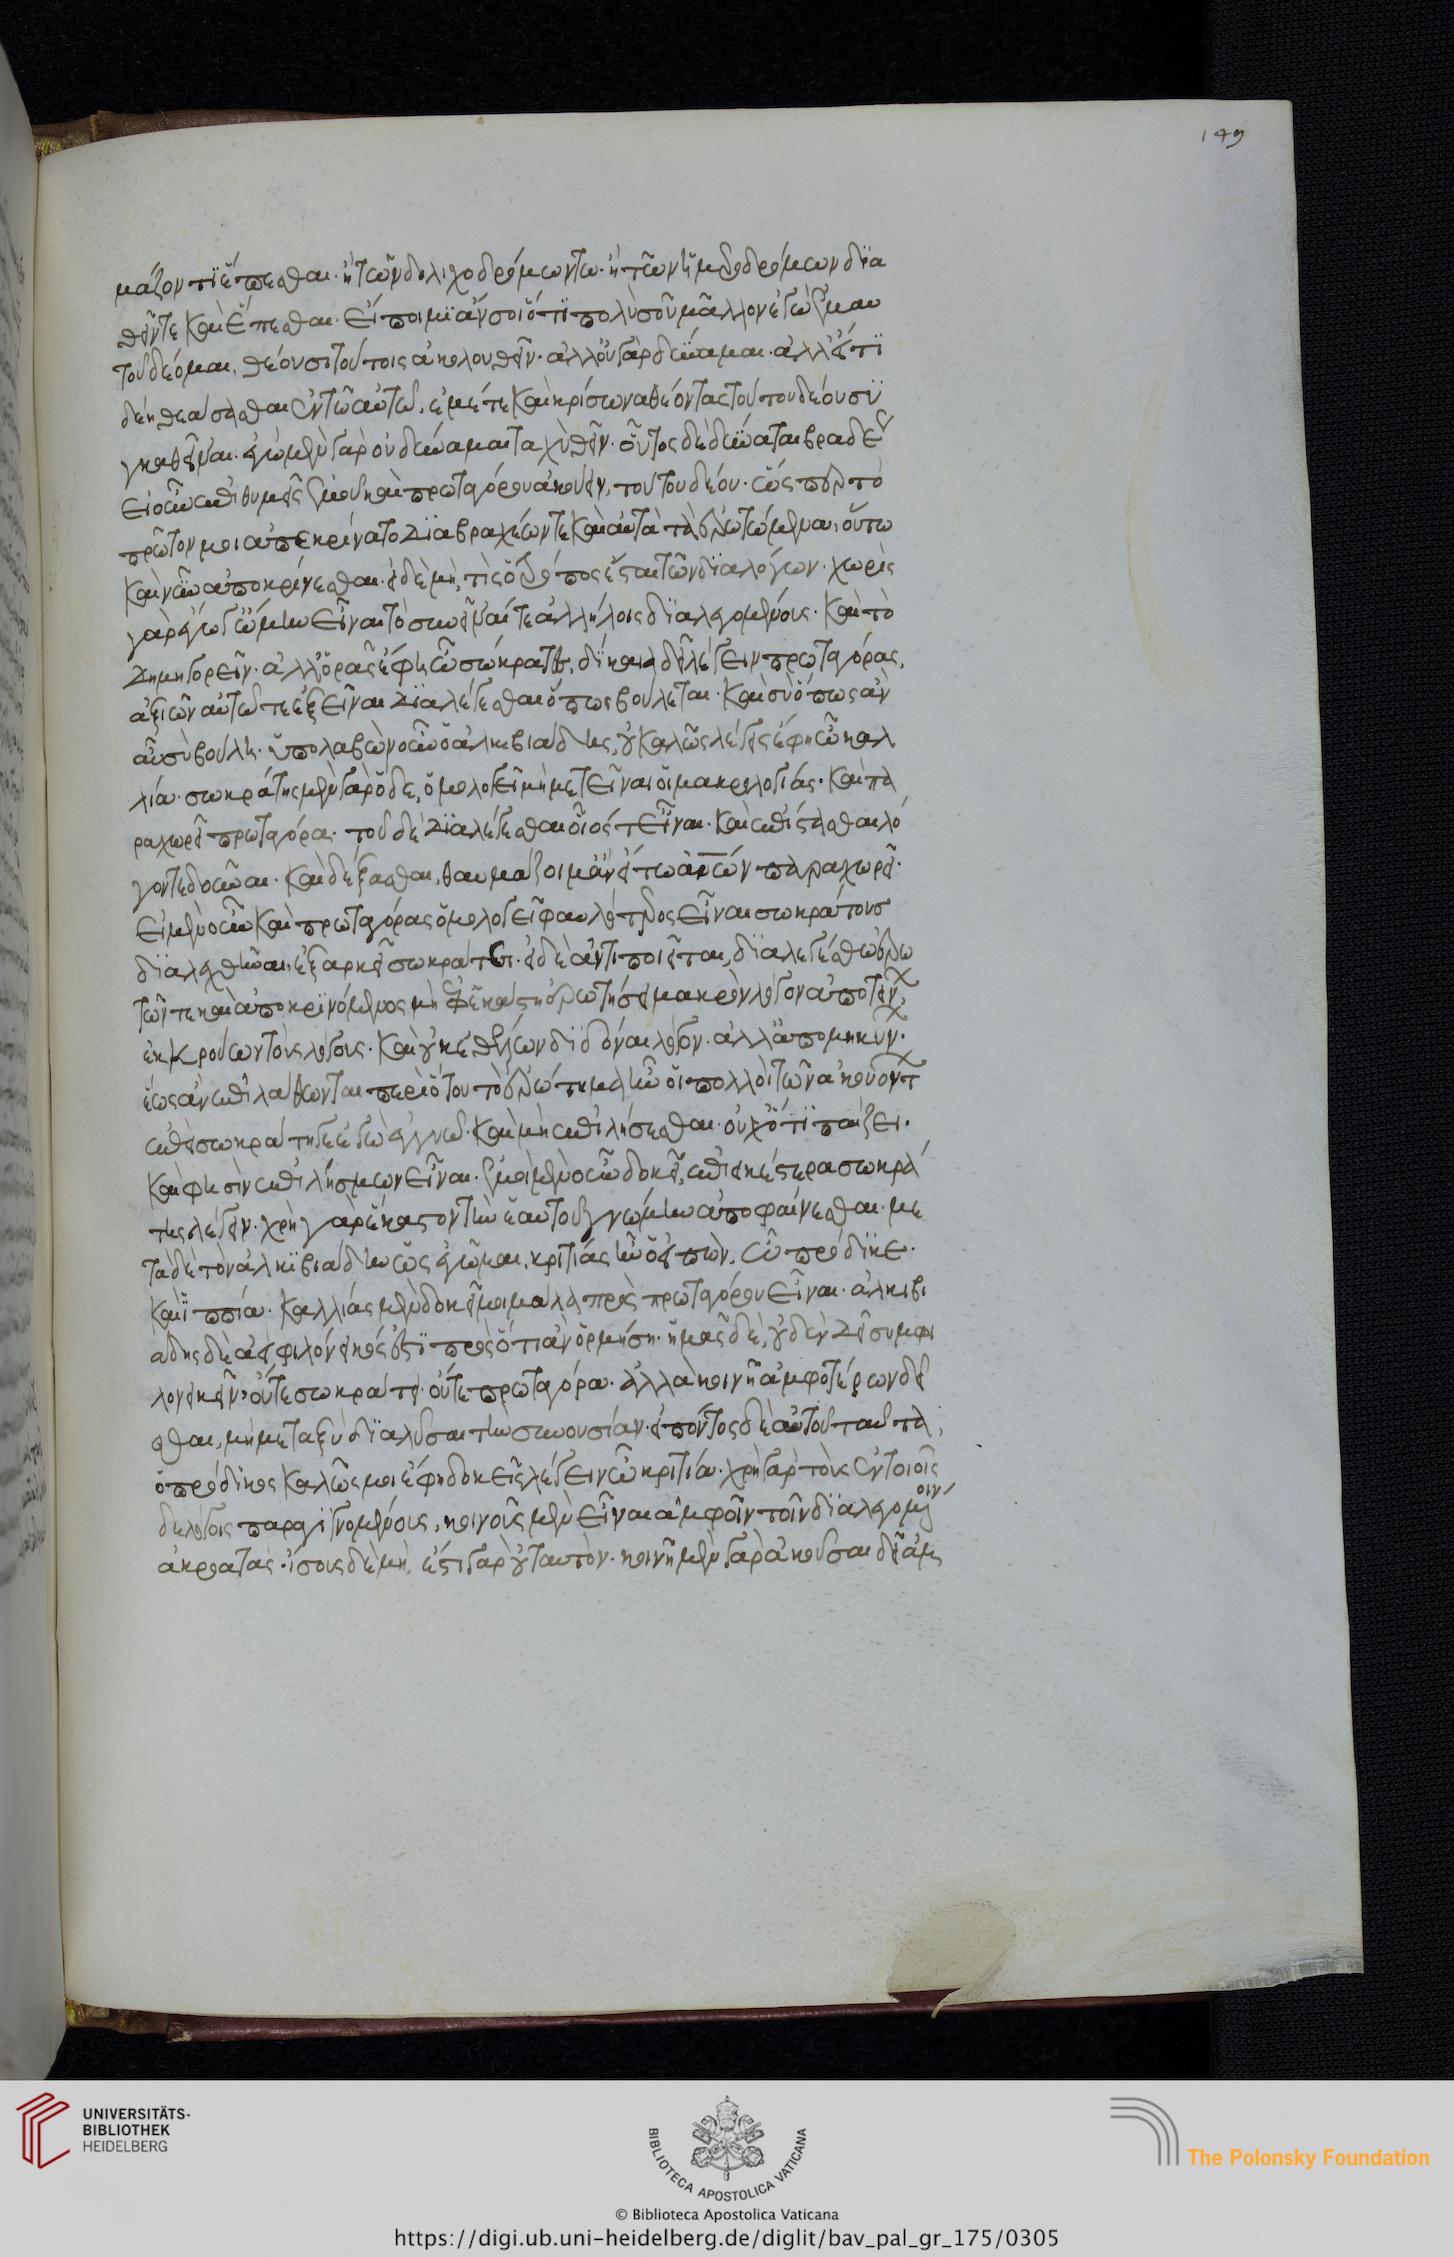 μάζοντι ἕπεσθαι· ἢ τῶν δολιχοδρόμων τω· ἢ τῶν ἡμεροδρόμων δϊα
θεῖν τε καὶ ἕπεσθαι· εἴποιμι ἄν σοι ὅτι πολὺ σοῦ μᾶλλον ἐγὼ ἐμαυ
τοῦ δέομαι, θέουσι τούτοις ἀκολουθεῖν· ἀλλ' οὐ γὰρ δύναμαι· ἀλλ' εἴ τι
δέη θεάσασθαι ἐν τῶ αὐτῶ, ἐμέ τε καὶ κρίσωνα θέοντας τούτου δέου συ
γκαθεῖναι· ἐγὼ μὲν γὰρ οὐ δύναμαι ταχὺ θεῖν· οὗτος δὲ δύναται βραδέως
εἰ οὖν ἐπιθυμεῖς ἐμοῦ καὶ πρωταγόρου ἀκούειν, τούτου δέου· ὥσπερ τὸ
πρῶτον μοι ἀπεκρίνατο διὰ βραχέων τε καὶ αὐτὰ τὰ ἐρωτώμενα, οὕτω
καὶ νῦν ἀποκρίνεσθαι· εἰ δὲ μὴ, τὶς ὁ τρόπος ἔσται τῶν διαλόγων· χωρὶς
γὰρ ἔγωγ' ὤμην εἶναι τὸ συνεῖναί τε ἀλλήλοις διαλεγομένους· καὶ τὸ
δημηγορεῖν· ἀλλ' ὁρᾶς ἔφη ὦ σώκρατες, δίκαια δοκεῖ λέγειν πρωταγόρας,
ἀξιῶν αὐτῶ τε ἐξεῖναι διαλέγεσθαι ὅπως βούλεται· καὶ σὺ ὅπως ἂν
αὖ σὺ βούλη· ὑπολαβὼν οὖν ὁ ἀλκιβιάδης, οὐ καλῶς λέγεις ἔφη ὦ καλ
λία· σωκράτης μὲν γὰρ ὅδε, ὁμολογεῖ μὴ μετεῖναι οἱ μακρολογίας· καὶ πα
ραχωρεῖ πρωταγόρα· τοῦ δὲ διαλέγεσθαι οἷός τ' εἶναι· καὶ ἐπίστασθαι λό
γον τε δοῦναι· καὶ δέξασθαι, θαυμάζοιμ' ἂν εἴ τω ἀνῶν παραχωρεῖ·
εἰ μὲν οὖν καὶ πρωταγόρας ὁμολογεῖ φαυλότερος εἶναι σωκράτους
διαλεχθῆναι, ἐξαρκεῖ σωκράτει· εἰ δὲ ἀντιποιεῖται, διαλεγέσθω ἐρω
τῶν τε καὶ ἀποκρινόμενος μὴ ἐφ' ἑκάστη ἐρωτήσει μακρὸν λόγον ἀποτείν
ἐκκρούων τοὺς λόγους· καὶ οὐκ ἐθέλων διδόναι λόγον· ἀλλ' ἀπομηκύν·
ἕως ἂν ἐπιλάθωνται περὶ ὅτου τὸ ἐρώτημα ἦν οἱ πολλοὶ τῶν ἀκουόντ
ἐπεὶ σωκράτη γε ἐγὼ ἐγγυῶ· καὶ μὴ ἐπιλήσεσθαι· οὐχ ὅτι παίζει·
καὶ φησὶν ἐπιλήσμων εἶναι· ἐμοὶ μὲν οὖν δοκεῖ, ἐπιεικέστερα σωκρά
της λέγειν· χρὴ γὰρ ἕκαστον τὴν ἑαυτοῦ γνώμην ἀποφαίνεσθαι· με
τὰ δὲ τὸν ἀλκιβιάδην ὡς ἐγῶμαι, κριτίας ἦν ὁ εἰπών, ὦ πρόδικε·
καὶ ἱππία· καλλίας μὲν δοκεῖ μοι μάλα πρὸς πρωταγόρου εἶναι· ἀλκιβι
άδης δὲ ἀεὶ φιλόνεικός ἐστι πρὸς ὅτι ἂν ὁρμήση· ἡμᾶς δὲ, οὐδὲν δεῖ συμφι
λονεικεῖν· οὔτε σωκράτει· οὔτε πρωταγόρα· ἀλλὰ κοινῆ ἀμφοτέρων δεῖ
σθαι, μὴ μεταξὺ διαλῦσαι τὴν συνουσίαν· εἰπόντος δὲ αὐτοῦ ταῦτα,
ὁ πρόδικος καλῶς μοι ἔφη δοκεῖς λέγειν ὦ κριτία· χρὴ γὰρ τοὺς ἐν τοιοῖς
δε λόγοις παραγιγνομένους, κοινοὺς μὲν εἶναι ἀμφοῖν τοῖν διαλεγομένοιν
ἀκροατάς· ἴσους δὲ μὴ, ἔστι γὰρ οὐ ταυτὸν· κοινῆ μὲν γὰρ ἀκοῦσαι δεῖ ἀμ
149
UNIVERSITÄTS-
BIBLIOTHEK
HEIDELBERG
BIBLIOTECA APOSTOLICA VATICANA
The Polonsky Foundation
© Biblioteca Apostolica Vaticana
https://digi.ub.uni-heidelberg.de/diglit/bav_pal_gr_175/0305